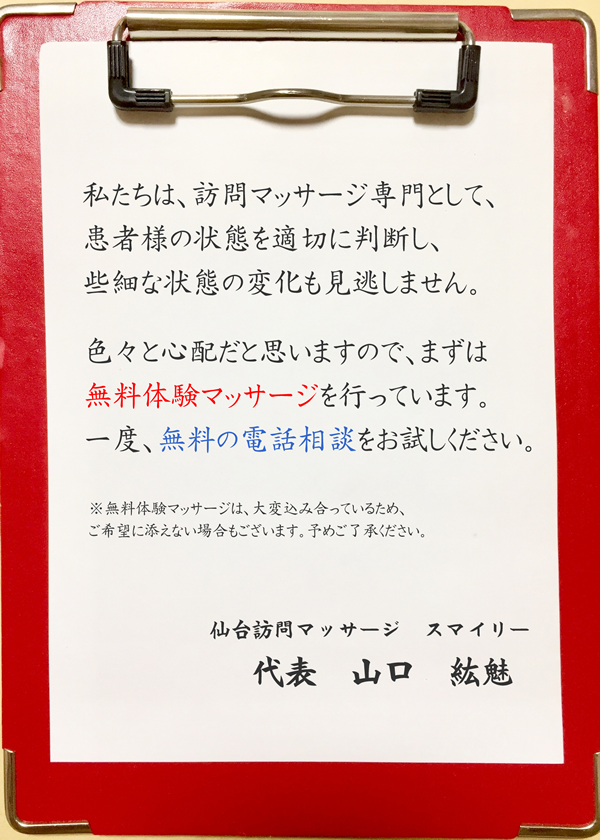 私たちは、訪問マッサージ専門として、
患者様の状態を適切に判断し、
些細な状態の変化も見逃しません。
色々と心配だと思いますので、まずは
無料体験マッサージを行っています。
一度、無料の電話相談をお試しください。
※無料体験マッサージは、大変込み合っているため、
ご希望に添えない場合もございます。予めご了承ください。
仙台訪問マッサージ　スマイリー
代表　山口　紘魅